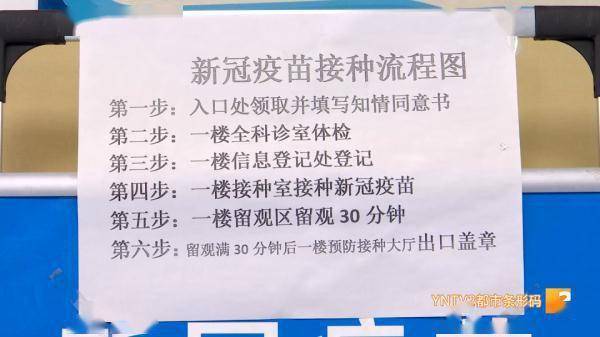 新冠疫苗接种流程图
第一步：入口处领取并填写知情同意书
第二步：一楼全科诊室体检
第三步：一楼信息登记处登记
第四步：一楼接种室接种新冠疫苗
第五步：一楼留观区留观 30 分钟
第六步：留观满 30 分钟后一楼预防接种大厅出口盖章
YNTV2都市条形码